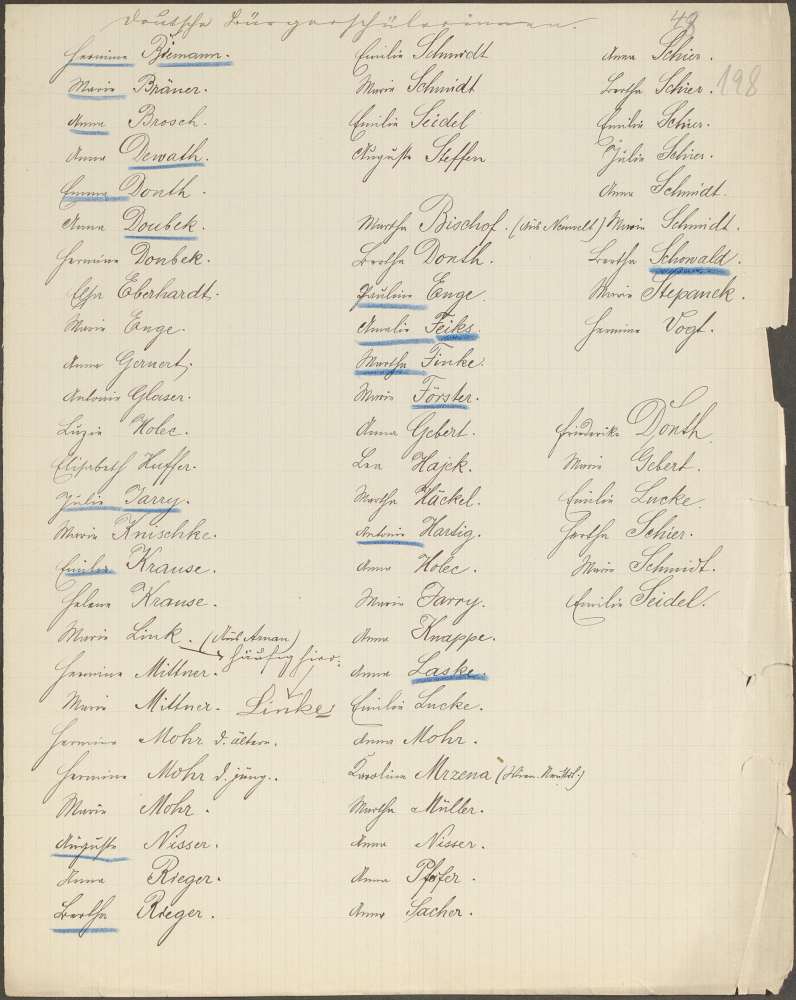 Deutsche Bürgerschülerinnen.
48
198
Hermine Biemann.
Marie Bräuer.
Anna Brosch.
Anna Dewath.
Emma Donth.
Anna Doubek.
Hermine Doubek.
Elsa Eberhardt.
Marie Enge.
Anna Gernert.
Antonie Glaser.
Luzie Holec.
Elisabeth Huffer.
Julie Jarry.
Marie Knischke.
Emilie Krause.
Helene Krause.
Marie Link. (Aus Arnau)
häufig hier:
Hermine Mittner.
Marie Mittner. Linke
Hermine Mohr d. ältere.
Hermine Mohr d. jüng..
Marie Mohr.
Auguste Nisser.
Anna Rieger.
Bertha Rieger.
Emilie Schmidt
Marie Schmidt
Emilie Seidel
Auguste Steffen
Martha Bischof. (Aus Neuwelt)
Bertha Donth.
Pauline Enge.
Amalie Feiks.
Martha Finke.
Marie Förster.
Anna Gebert.
Lea Hajek.
Martha Häckel.
Antonie Hartig.
Anna Holec.
Marie Jarry.
Anna Knappe.
Anna Laske.
Emilie Lucke.
Anna Mohr.
Karoline Mrzena
Martha Müller.
Anna Nisser.
Anna Pfeifer.
Anna Sacher.
Anna Schier.
Bertha Schier.
Emilie Schier.
Julie Schier.
Anna Schmidt.
Marie Schmidt.
Bertha Schowald.
Marie Stepanek.
Hermine Vogt.
Friederike Donth.
Marie Gebert.
Emilie Lucke.
Hertha Schier.
Marie Schmidt.
Emilie Seidel.